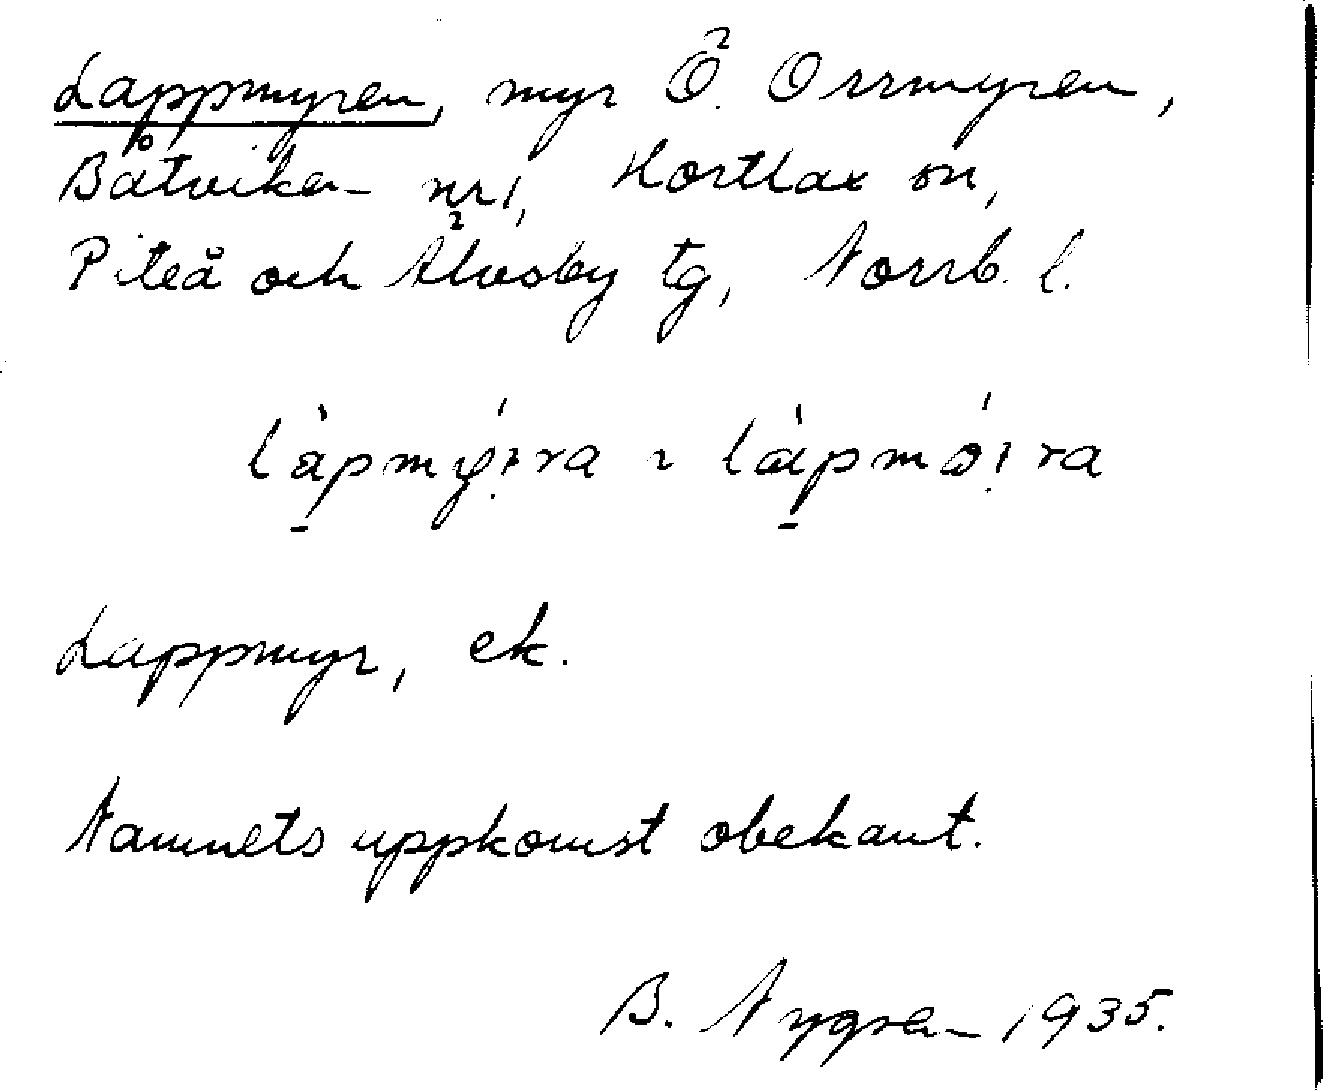 Lappmyren, myr Ö. Orrmyren,
Båtviken nr 1, Hortlax sn,
Piteå och Älvsby tg, Norrb. l.
làpmý:ra ~ làpmǿ:ra
Lappmyr, ek.
Namnets uppkomst obekant.
B. Nygren 1935.